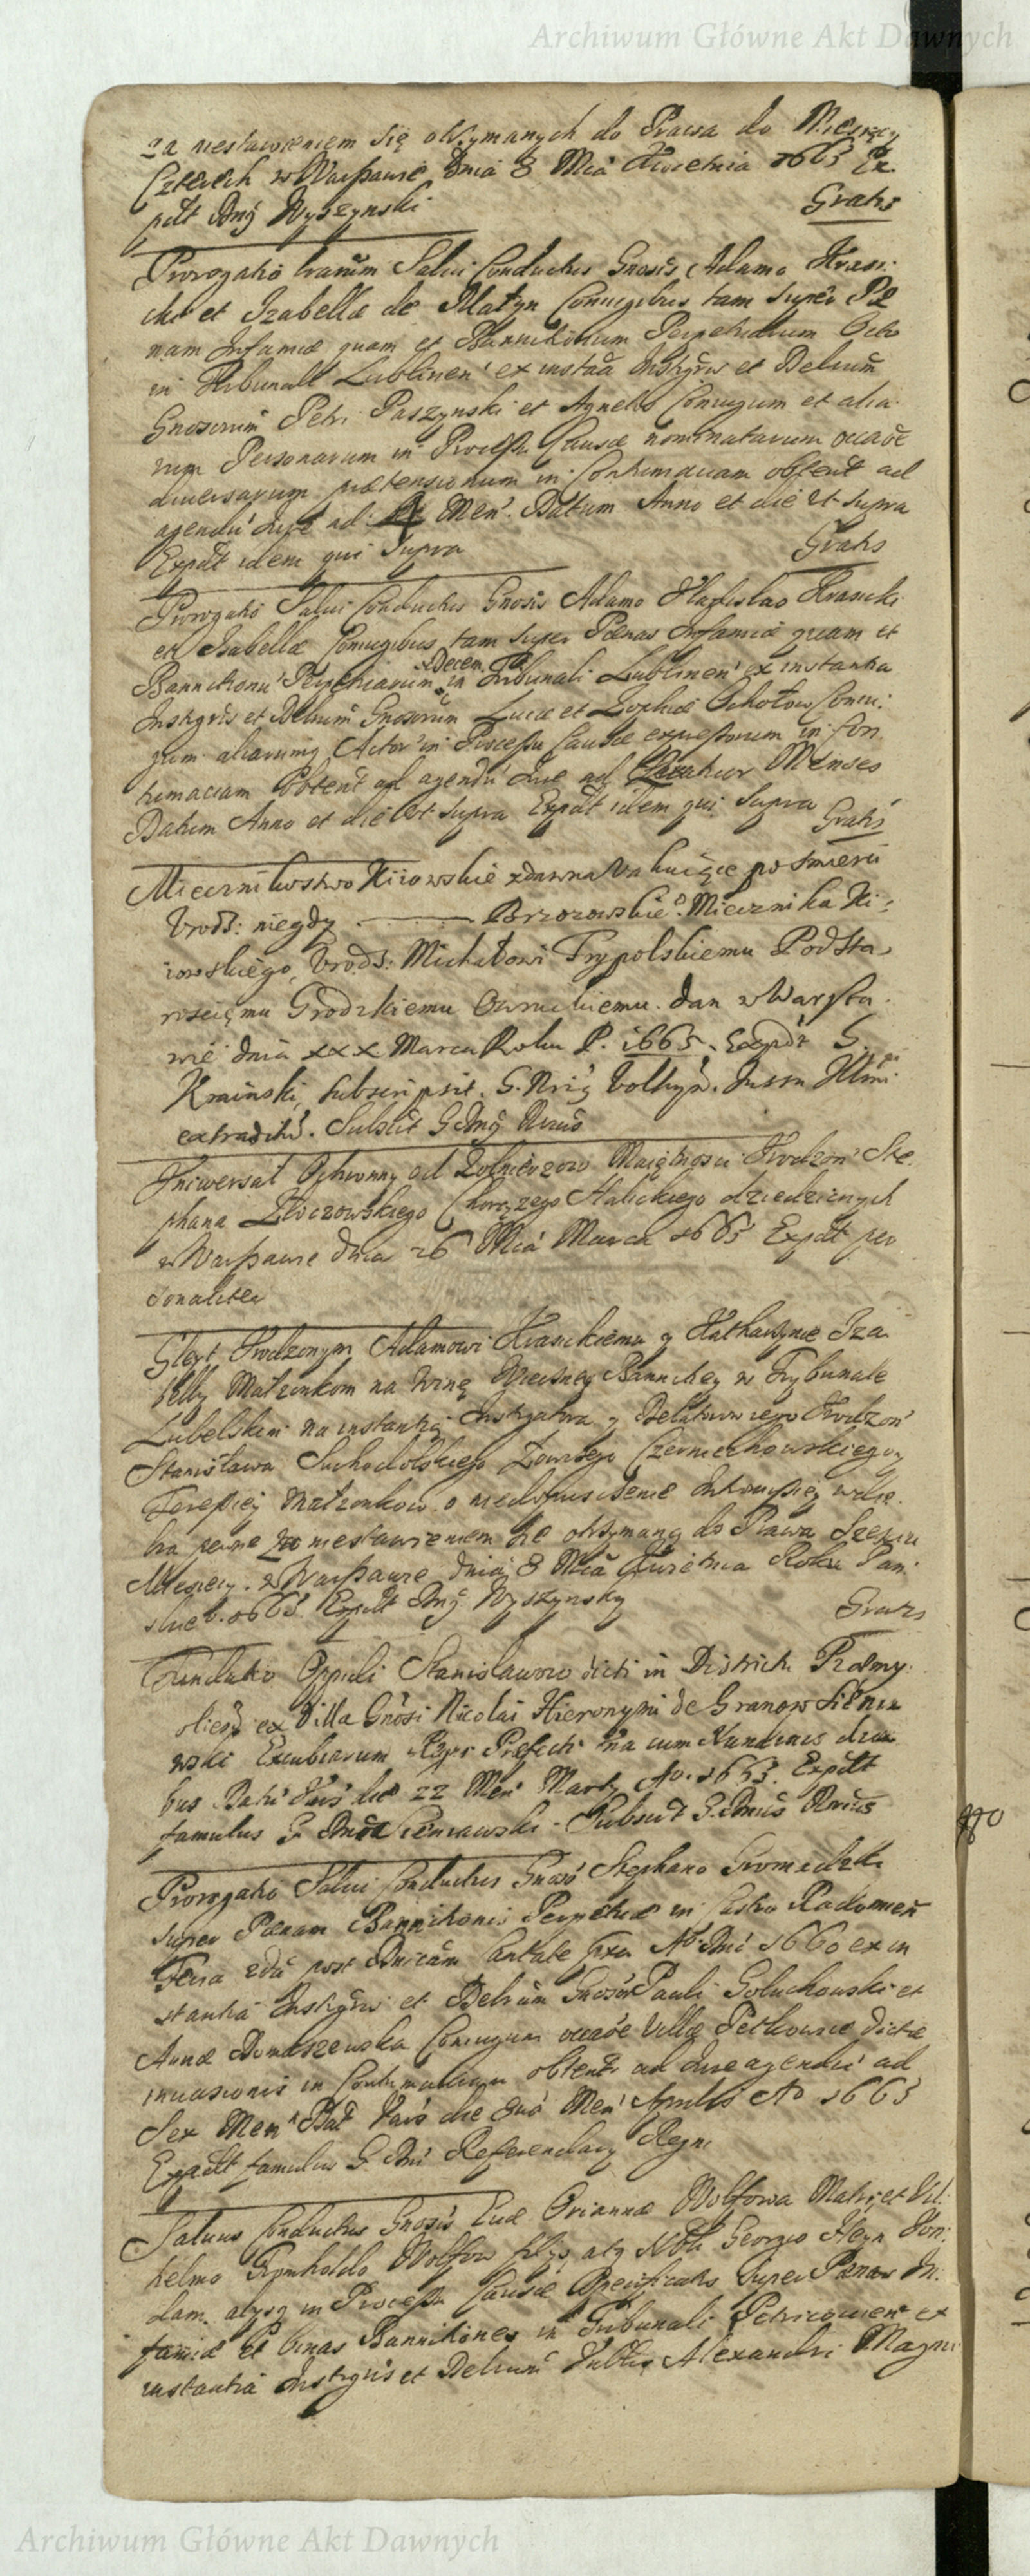 Archiwum Główne Akt Dawnych
za niestawieniem się otrzymanych do Prawa do Miesięcy
Czterech w Warszawie Dnia 8 Mca Kwietnia 1663 Ex
pdt Dnus Wyszynski Gratis
Prorogatio Salvi Conductus Gnosis Adamo Krasi
cki et Izabellæ de Matyn Conjugibus tam super Pæ
nam Infamiæ quam et Bannitionum Perpetuarum Octo
in Tribunali Lublinen ex instãa Instigris et Delrum
Gnosorum Petri Paszynski et Agnetis Conjugum et alia
rum Personarum in Processu Causæ nominatarum occaõe
diversarum prætensionum in Contumaciam obtent ad
agendũ Jure ad 4 Men. Datum Anno et die ut supra
Expdt idem qui Supra Gratis
Prorogatio Salvi Conductus Gnosis Adamo Wladislao Krasicki
et Isabellæ Conjugibus tam super Pænas Infamiæ quam et
Bannitionũ Perpetuarum Decem in Tribunali Lublinen ex instantia
Instigris et Delrum Gnosorum Lucæ et Zophiæ Conju
gum aliarumq Actor in Processu Causæ expressorum in Con
tumaciam obtent ad agendũ Jure ad Quatuor Menses
Datum Anno et die ut supra Expdt idem qui Supra Gratis
Miecznikowstwo Kiiowskie zdawna Vakuiące po smierci
Vrodz: niegdy Brzozowskieo Miecznika Ki:
iowskiego, Vrodz: Michałowi Trypolskiemu Podsta
rosciemu Grodzkiemu Owruckiemu. Dan w Warsza
wie dnia xxx Marca Roku P. 1663. Expdt S.
Krainski, subscripsit. S. Nriq Volhyn. Jussu Illmi
extraditũ. Substit
Uniwersał Ochronny od Zołnierzow Maiętnosci Urodzon Ste
phana Chorązego Halickiego dziedzicznych
w Warszawie dnia 26 Mca Marca 1663 Expdt per
sonaliter
Gleyt Urodzonym Adamowi Krasickiemu y Katharzynie Iza
belly Małzonkom na Winę Wieczney Bannitiey w Trybunale
Lubelskim na instantią Instigatora y Delatorow iego Urodzon
Stanisława Suchodolskiego Łowczego Czerniechowskiego y
Teressiey Małzonkow o niedopuszczenie Intromissiey w
pewne za niestawieniem się otrzymaną do Prawa Szesciu
Miesięcy. w Warszawie dnia 8 Mca Kwietnia Roku Pan
skieo 1663 Expdt Dnus Wyszynsky Gratis
Fundatio Oppidi Stanisławow dicti in Districtu Præmy
slien ex Villa Gnosi Nicolai Hieronymi de Granow Sienia
wski Excubiarum Regni Præfecti una cum Nundinis dua
bus Datũ Vars die 22 Men Marty Ao. 1663. Expdt
famulus G Dni Sieniawski. Subscrt
Prorogatio Salvi Conductus Gnoso Stephano Gromadzki
super Pænam Bannitionis Perpetuæ in Castro Radomien
Feria 2da post Dnicam Cantate Ao Dni 1660 ex in
stantia Instigris et Delrum Gnosor Pauli Goluchowski et
Annæ Domaszewska Conjugum occaõe Villæ Petkowice dictæ
invasionis in Contumaciam obtent ad Jure agendũ ad
Sex Men. Dat Vars die 8va Men Aprilis Ao 1663
Expdt famulus G. Dni Referendary Regni
Salvus Conductus Gnosis Evæ Oriannæ Wolfowa Matri, et Vil
helmo Wolfow filys, atq Nbli Georgio Heyn
alysq in Processu Causæ specificatis super Pænas In
famiæ et binas Bannitiones in Tribunali Petricovien ex
instantia Instigris et Delrum Alexandri Magni
Archiwum Główne Akt Dawnych